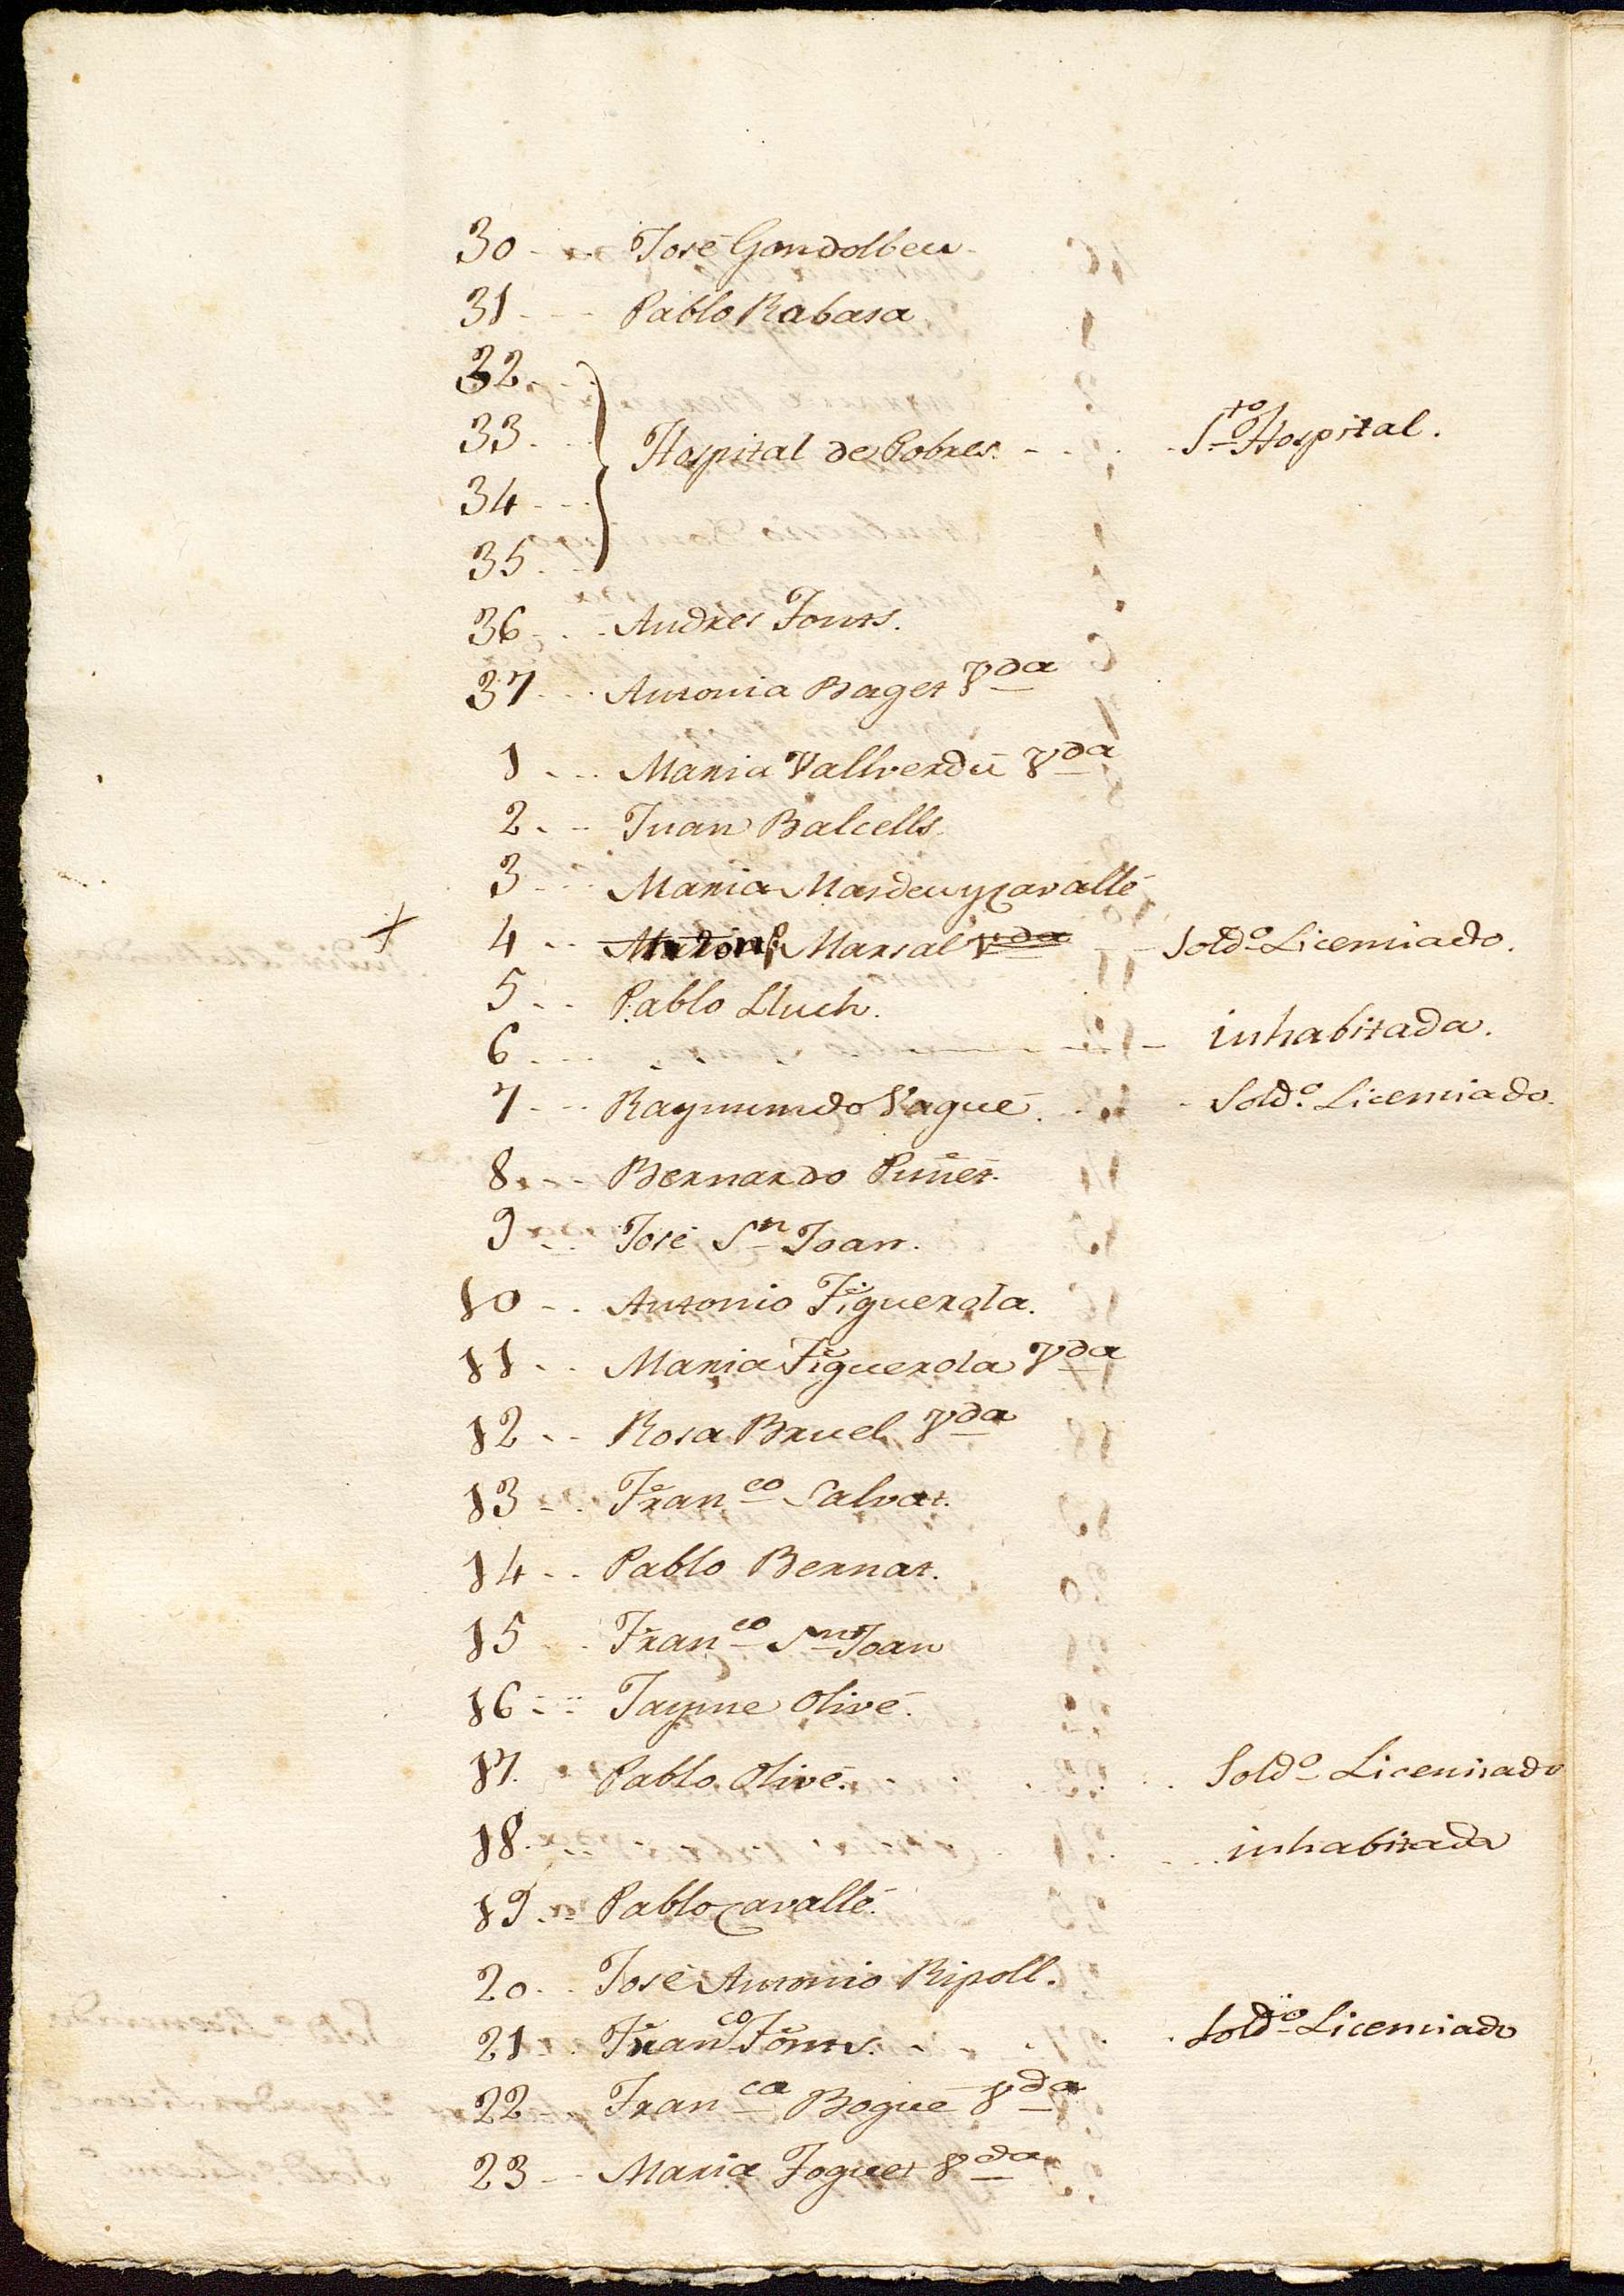 30 - - - José Gondolbeu
31 - - - Pablo Rabasa
32 - - -
33 - - - Hospital de Pobres. - - - - Sto Hospital.
34 - - -
35 - -
36 - - - Andres Fonts.
37 - - - Antonia Baget Vda
1 - - - Maria Vallverdú Vda
2 - - - Juan Balcells
3 - - - Maria Masdeu y Cavallé
+ 4 - - - Marsal Vda - - Soldo Licenciado.
5 - - - Pablo Lluch.
6 - - - inhabitada.
7 - - - Raymundo Vagué. - - - Soldo Licenciado.
8 - - - Bernardo Piñet.
9 - - - José Sn Joan.
10 - - Antonio Figuerola.
11 - - Maria Figuerola Vda
12 - - Rosa Bruel Vda
13 - - Franco Salvat.
14 - - Pablo Bernat.
15 - - Franco Sn Joan
16 - - Jayme Olivé.
17. - Pablo Olivé. - - - - Soldo Licenciado
18. - - - inhabitada
19 - - Pablo Cavallé.
20 - - José Antonio Ripoll.
21 - - Franco Fonts. - - - - Soldo Licenciado
22 - - Franca Bogué Vda
23 - - Maria Foguet Vda